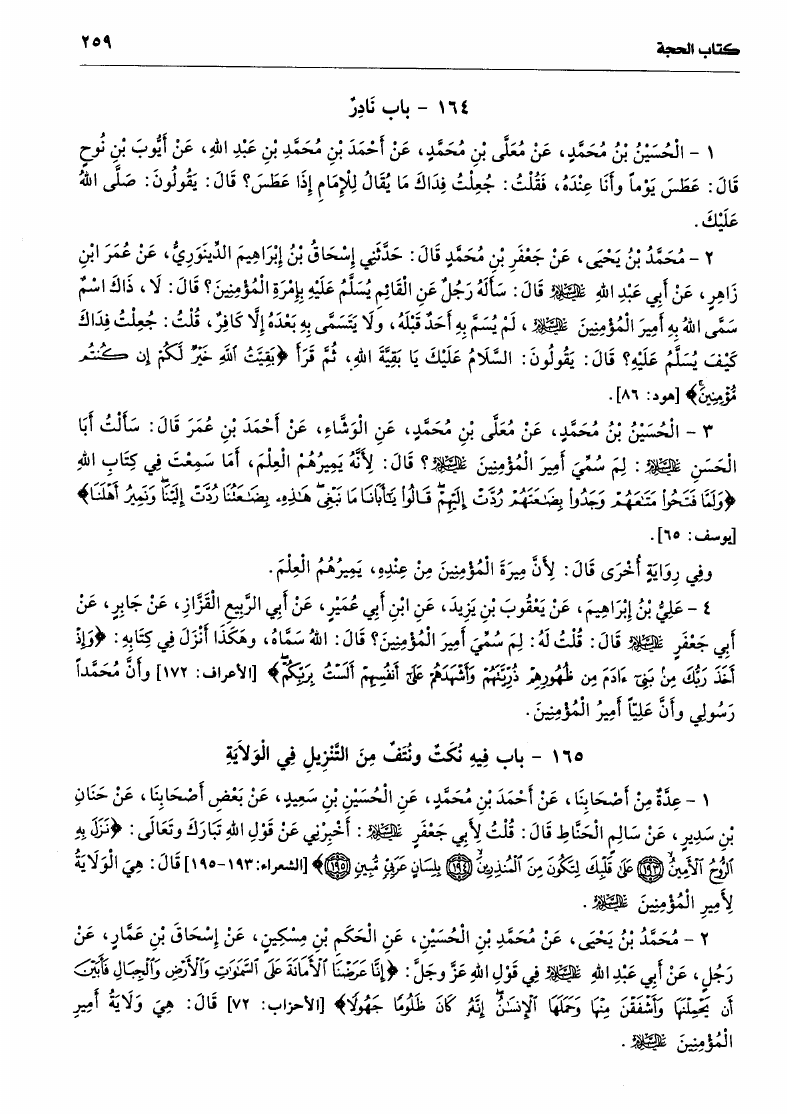 كتاب الحجة
٢٥٩
١٦٤ - باب نَادِرٌ
١ - الْحُسَيْنُ بْنُ مُحَمَّدٍ، عَنْ مُعَلَّى بْنِ مُحَمَّدٍ، عَنْ أَحْمَدَ بْنِ مُحَمَّدِ بْنِ عَبْدِ اللهِ، عَنْ أَيُّوبَ بْنِ نُوحٍ
قَالَ: عَطَسَ يَوْماً وأَنَا عِنْدَهُ، فَقُلْتُ: جُعِلْتُ فِدَاكَ مَا يُقَالُ لِلْإِمَامِ إِذَا عَطَسَ؟ قَالَ: يَقُولُونَ: صَلَّى اللهُ
عَلَيْكَ.
٢ - مُحَمَّدُ بْنُ يَحْيَى، عَنْ جَعْفَرِ بْنِ مُحَمَّدٍ قَالَ: حَدَّثَنِي إِسْحَاقُ بْنُ إِبْرَاهِيمَ الدِّينَوَرِيُّ، عَنْ عُمَرَ ابْنِ
زَاهِرٍ، عَنْ أَبِي عَبْدِ اللهِ عَلَيْهِ السَّلَامُ قَالَ: سَأَلَهُ رَجُلٌ عَنِ الْقَائِمِ يُسَلَّمُ عَلَيْهِ بِإِمْرَةِ الْمُؤْمِنِينَ؟ قَالَ: لَا، ذَاكَ اسْمٌ
سَمَّى اللهُ بِهِ أَمِيرَ الْمُؤْمِنِينَ عَلَيْهِ السَّلَامُ، لَمْ يُسَمَّ بِهِ أَحَدٌ قَبْلَهُ، ولَا يَتَسَمَّى بِهِ بَعْدَهُ إِلَّا كَافِرٌ، قُلْتُ: جُعِلْتُ فِدَاكَ
كَيْفَ يُسَلَّمُ عَلَيْهِ؟ قَالَ: يَقُولُونَ: السَّلَامُ عَلَيْكَ يَا بَقِيَّةَ اللهِ، ثُمَّ قَرَأَ ﴿بَقِيَّتُ ٱللَّهِ خَيْرٌ لَّكُمْ إِن كُنتُم
مُّؤْمِنِينَ﴾ [هود: ٨٦].
٣ - الْحُسَيْنُ بْنُ مُحَمَّدٍ، عَنْ مُعَلَّى بْنِ مُحَمَّدٍ، عَنِ الْوَشَّاءِ، عَنْ أَحْمَدَ بْنِ عُمَرَ قَالَ: سَأَلْتُ أَبَا
الْحَسَنِ عَلَيْهِ السَّلَامُ: لِمَ سُمِّيَ أَمِيرَ الْمُؤْمِنِينَ عَلَيْهِ السَّلَامُ؟ قَالَ: لِأَنَّهُ يَمِيرُهُمْ الْعِلْمَ، أَمَا سَمِعْتَ فِي كِتَابِ اللهِ
﴿وَلَمَّا فَتَحُوا۟ مَتَـٰعَهُمْ وَجَدُوا۟ بِضَـٰعَتَهُمْ رُدَّتْ إِلَيْهِمْ قَالُوا۟ يَـٰٓأَبَانَا مَا نَبْغِى هَـٰذِهِۦ بِضَـٰعَتُنَا رُدَّتْ إِلَيْنَا وَنَمِيرُ أَهْلَنَا﴾
[يوسف: ٦٥].
وفِي رِوَايَةٍ أُخْرَى قَالَ: لِأَنَّ مِيرَةَ الْمُؤْمِنِينَ مِنْ عِنْدِهِ، يَمِيرُهُمُ الْعِلْمَ.
٤ - عَلِيُّ بْنُ إِبْرَاهِيمَ، عَنْ يَعْقُوبَ بْنِ يَزِيدَ، عَنِ ابْنِ أَبِي عُمَيْرٍ، عَنْ أَبِي الرَّبِيعِ الْقَزَّازِ، عَنْ جَابِرٍ، عَنْ
أَبِي جَعْفَرٍ عَلَيْهِ السَّلَامُ قَالَ: قُلْتُ لَهُ: لِمَ سُمِّيَ أَمِيرَ الْمُؤْمِنِينَ؟ قَالَ: اللهُ سَمَّاهُ، وهَكَذَا أَنْزَلَ فِي كِتَابِهِ: ﴿وَإِذْ
أَخَذَ رَبُّكَ مِنۢ بَنِىٓ ءَادَمَ مِن ظُهُورِهِمْ ذُرِّيَّتَهُمْ وَأَشْهَدَهُمْ عَلَىٰٓ أَنفُسِهِمْ أَلَسْتُ بِرَبِّكُمْ﴾ [الأعراف: ١٧٢] وأَنَّ مُحَمَّداً
رَسُولِي وأَنَّ عَلِيّاً أَمِيرُ الْمُؤْمِنِينَ.
١٦٥ - باب فِيهِ نُكَتٌ ونُتَفٌ مِنَ التَّنْزِيلِ فِي الْوَلَايَةِ
١ - عِدَّةٌ مِنْ أَصْحَابِنَا، عَنْ أَحْمَدَ بْنِ مُحَمَّدٍ، عَنِ الْحُسَيْنِ بْنِ سَعِيدٍ، عَنْ بَعْضِ أَصْحَابِنَا، عَنْ حَنَانِ
بْنِ سَدِيرٍ، عَنْ سَالِمٍ الْحَنَّاطِ قَالَ: قُلْتُ لِأَبِي جَعْفَرٍ عَلَيْهِ السَّلَامُ: أَخْبِرْنِي عَنْ قَوْلِ اللهِ تَبَارَكَ وتَعَالَى: ﴿نَزَلَ بِهِ
ٱلرُّوحُ ٱلْأَمِينُ ﴿١٩٣﴾ عَلَىٰ قَلْبِكَ لِتَكُونَ مِنَ ٱلْمُنذِرِينَ ﴿١٩٤﴾ بِلِسَانٍ عَرَبِىٍّ مُّبِينٍ ﴿١٩٥﴾﴾ [الشعراء: ١٩٣-١٩٥] قَالَ: هِيَ الْوَلَايَةُ
لِأَمِيرِ الْمُؤْمِنِينَ عَلَيْهِ السَّلَامُ.
٢ - مُحَمَّدُ بْنُ يَحْيَى، عَنْ مُحَمَّدِ بْنِ الْحُسَيْنِ، عَنِ الْحَكَمِ بْنِ مِسْكِينٍ، عَنْ إِسْحَاقَ بْنِ عَمَّارٍ، عَنْ
رَجُلٍ، عَنْ أَبِي عَبْدِ اللهِ عَلَيْهِ السَّلَامُ فِي قَوْلِ اللهِ عَزَّ وجَلَّ: ﴿إِنَّا عَرَضْنَا ٱلْأَمَانَةَ عَلَى ٱلسَّمَـٰوَٰتِ وَٱلْأَرْضِ وَٱلْجِبَالِ فَأَبَيْنَ
أَن يَحْمِلْنَهَا وَأَشْفَقْنَ مِنْهَا وَحَمَلَهَا ٱلْإِنسَـٰنُ إِنَّهُۥ كَانَ ظَلُومًا جَهُولًا﴾ [الأحزاب: ٧٢] قَالَ: هِيَ وَلَايَةُ أَمِيرِ
الْمُؤْمِنِينَ عَلَيْهِ السَّلَامُ.